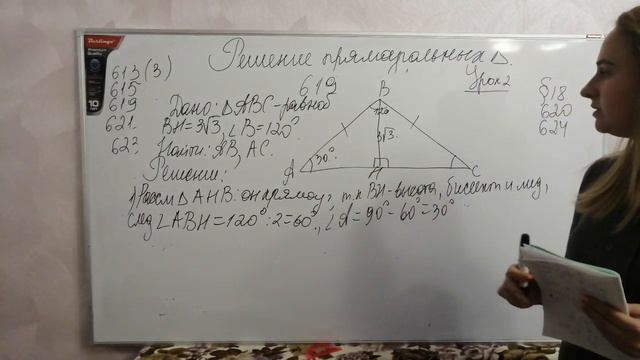 Решение прямоугольных Δ.
Урок 2
613(3)
615
619
621.
622
619
§18
620
624
Дано: ΔABC - равноб
BH=3√3, ∠B=120°
Найти: AB, AC.
Решение:
B
120°
3√3
A
30°
H
C
1) Рассм ΔAHB: он прямоуг, т.к BH - высота, биссект и мед,
след ∠ABH=120°:2=60°, ∠A=90°-60°=30°
Berlingo
Premium Quality
10